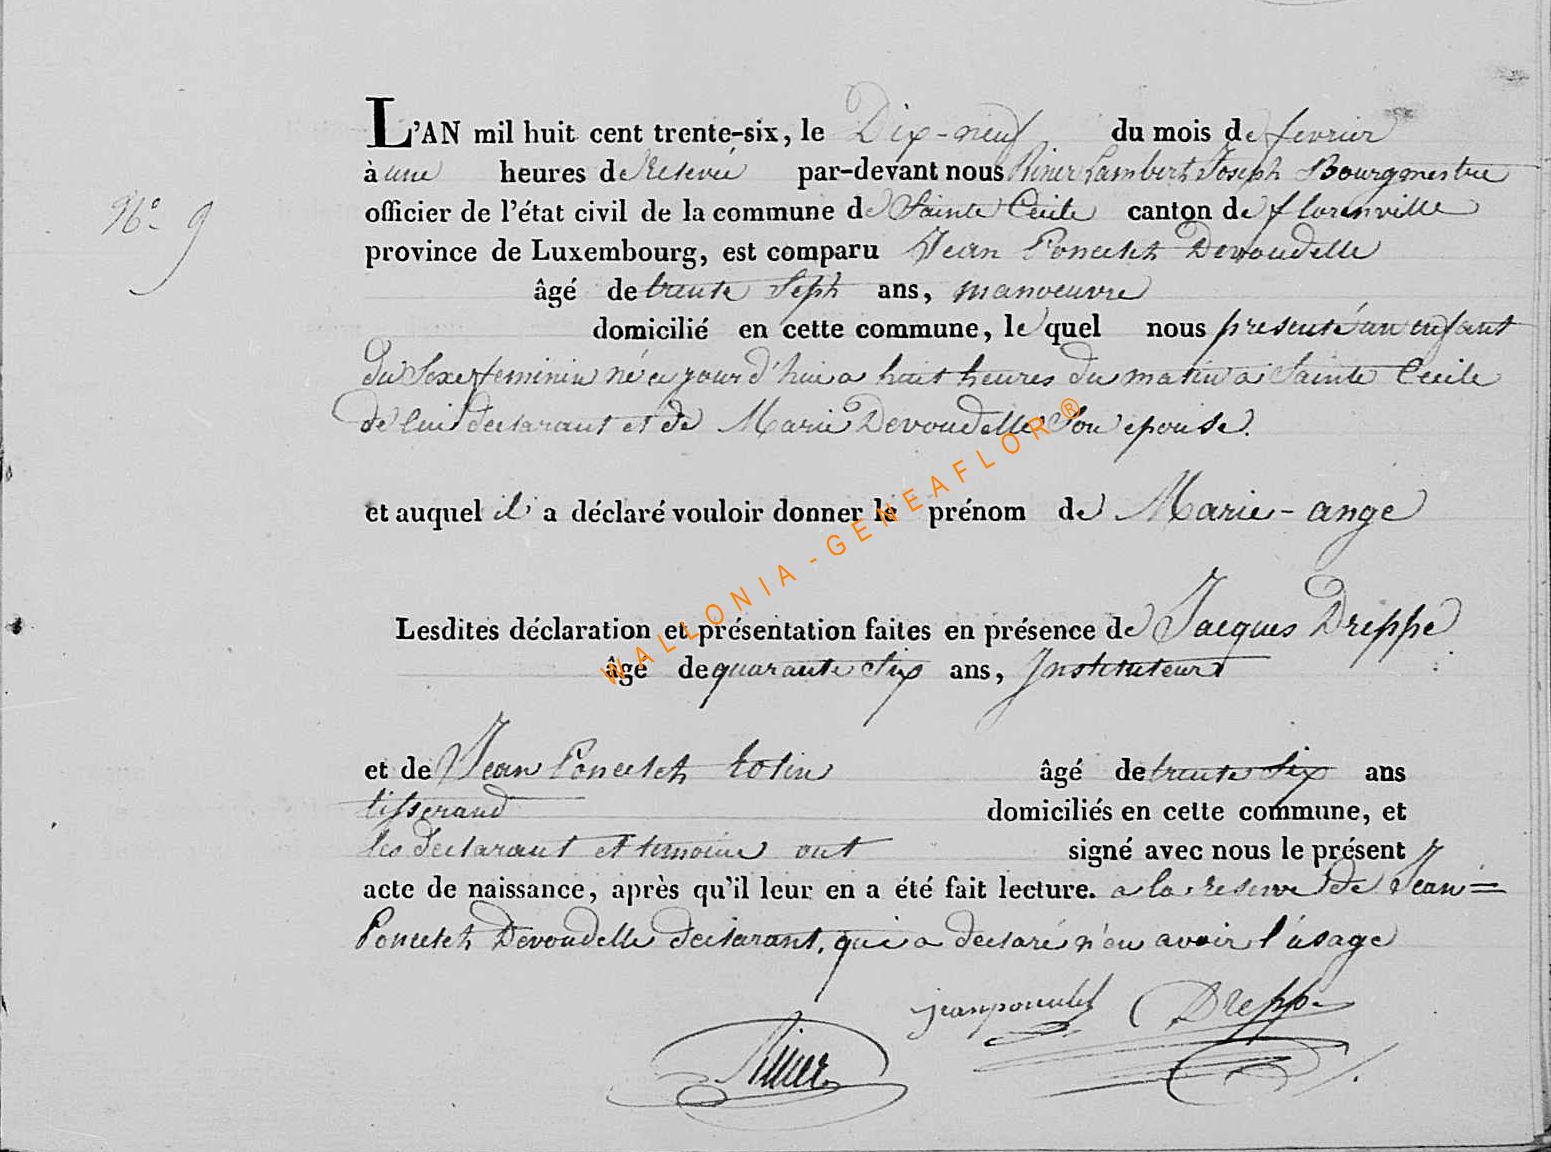 N° 9
L'AN mil huit cent trente-six, le Dix-neuf du mois de fevrier
à une heures de relevée par-devant nous Riner Lambert Joseph Bourgmestre
officier de l'état civil de la commune de Sainte Cecile canton de florenville
province de Luxembourg, est comparu Jean Poncelet Devoudelle
âgé de trente Sept ans, manoeuvre
domicilié en cette commune, le quel nous presenté un enfant
du Sexe feminin né ce jourd'hui a huit heures du matin a Sainte Cecile
de lui declarant et de Marie Devoudelle Son epouse.
et auquel il a déclaré vouloir donner le prénom de Marie-ange
Lesdites déclaration et présentation faites en présence de Jacques Dreppe
âgé de quarante Six ans, Instituteur
et de Jean Poncelet âgé de trente Six ans
tisserand domiciliés en cette commune, et
les declarant et temoins ont signé avec nous le présent
acte de naissance, après qu'il leur en a été fait lecture. a la reserve de Jean=
Poncelet Devoudelle declarant, qui a declaré n'en avoir l'usage
jean poncelet Dreppe
Riner
WALLONIA-GENEAFLOR®